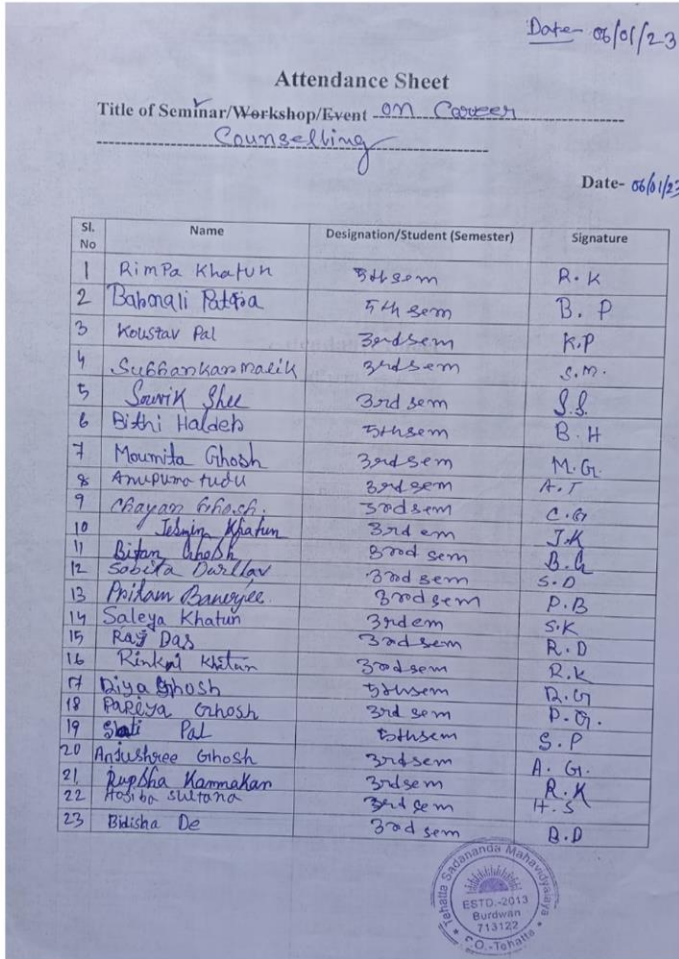 Date- 06/01/23
Attendance Sheet
Title of Seminar/Workshop/Event on Career
Counselling
Date- 06/01/23
Sl. No Name Designation/Student (Semester) Signature
1 Rimpa Khatun 5th sem R.K
2 5th sem B.P
3 Koustav Pal 3rd sem K.P
4 Subhankar Malik 3rd sem S.M.
5 Souvik Shee 3rd sem S.S.
6 Bithi Halder 5th sem B.H
7 Moumita Ghosh 3rd sem M.G.
8 Anupuma tudu 3rd sem A.T
9 Chayan Ghosh. 3rd sem C.G
10 Jesmin Khatun 3rd em J.K
11 Bitan Ghosh 3rd sem B.G
12 Sobita 3rd sem S.D
13 Pritam Banerjee. 3rd sem P.B
14 Saleya Khatun 3rd em S.K
15 Raj Das 3rd sem R.D
16 3rd sem R.K
17 Diya Ghosh 5th sem D.G
18 Pareya Ghosh 3rd sem P.G.
19 Pal 5th sem S.P
20 Anjushree Ghosh 3rd sem A.G.
21 Rupsha Karmakar 3rd sem R.K
22 Hasiba Sultana 3rd sem H.S
23 Bidisha De 3rd sem B.D
Tehatta Sadananda Mahavidyalaya
ESTD.-2013
Burdwan
713122
P.O.-Tehatta